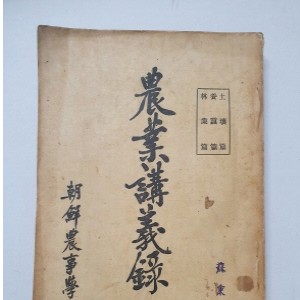 土壤篇
養蠶篇
林業篇
農業講義錄
朝鮮農事學